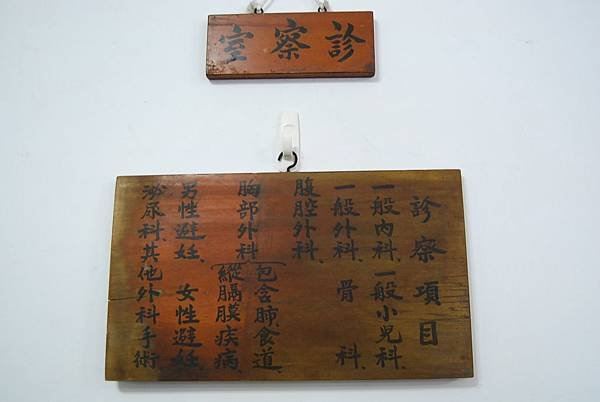 診察室
診察項目
一般內科、一般小兒科、
一般外科、骨科、
腹腔外科、
胸部外科（包含肺食道、
縱膈膜疾病、
男性避妊、女性避妊、
泌尿科、其他外科手術、